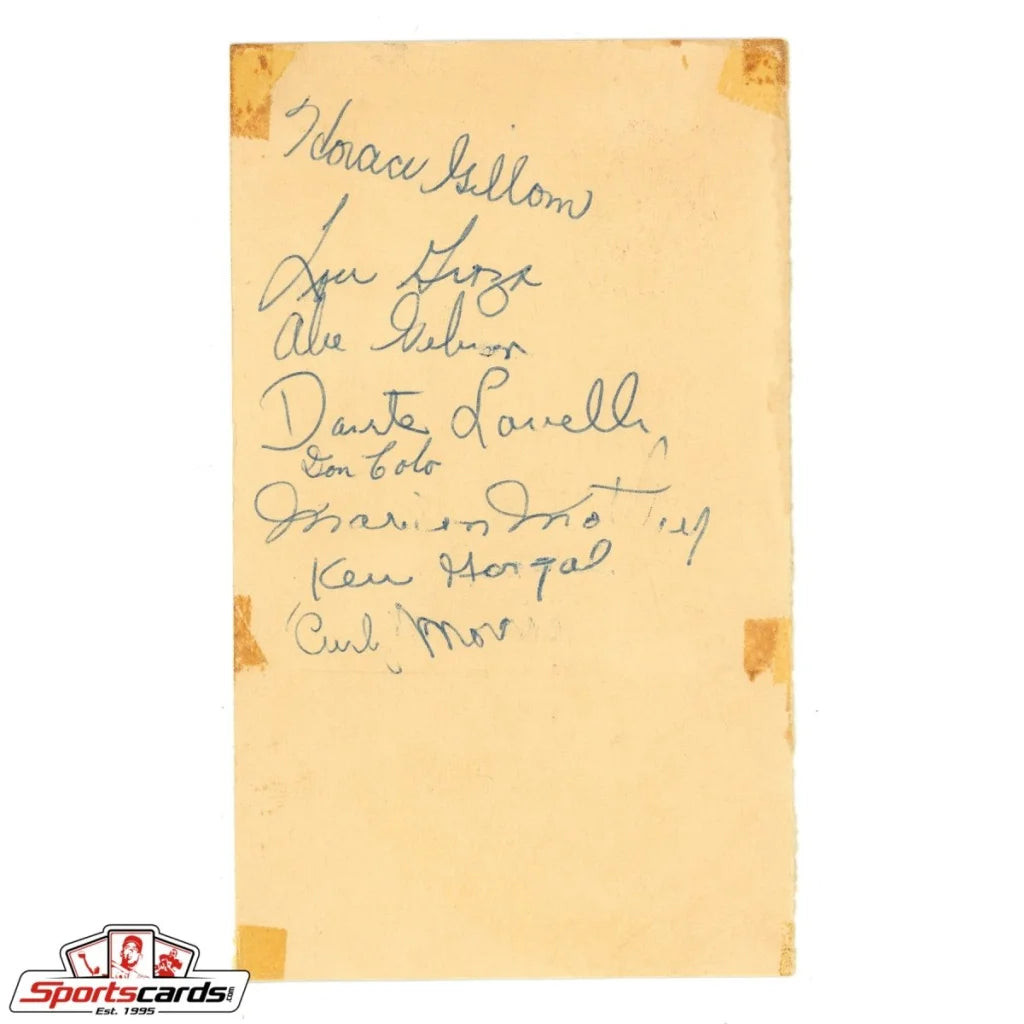 Horace Gillom
Lou Groza
Abe Gibron
Dante Lavelli
Don Colo
Marion Motley
Ken Gorgal
Curly Mor
Sportscards.com
Est. 1995